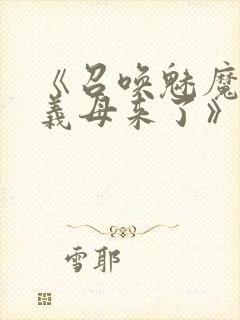 《召唤魅魔
義母来了》
雪耶